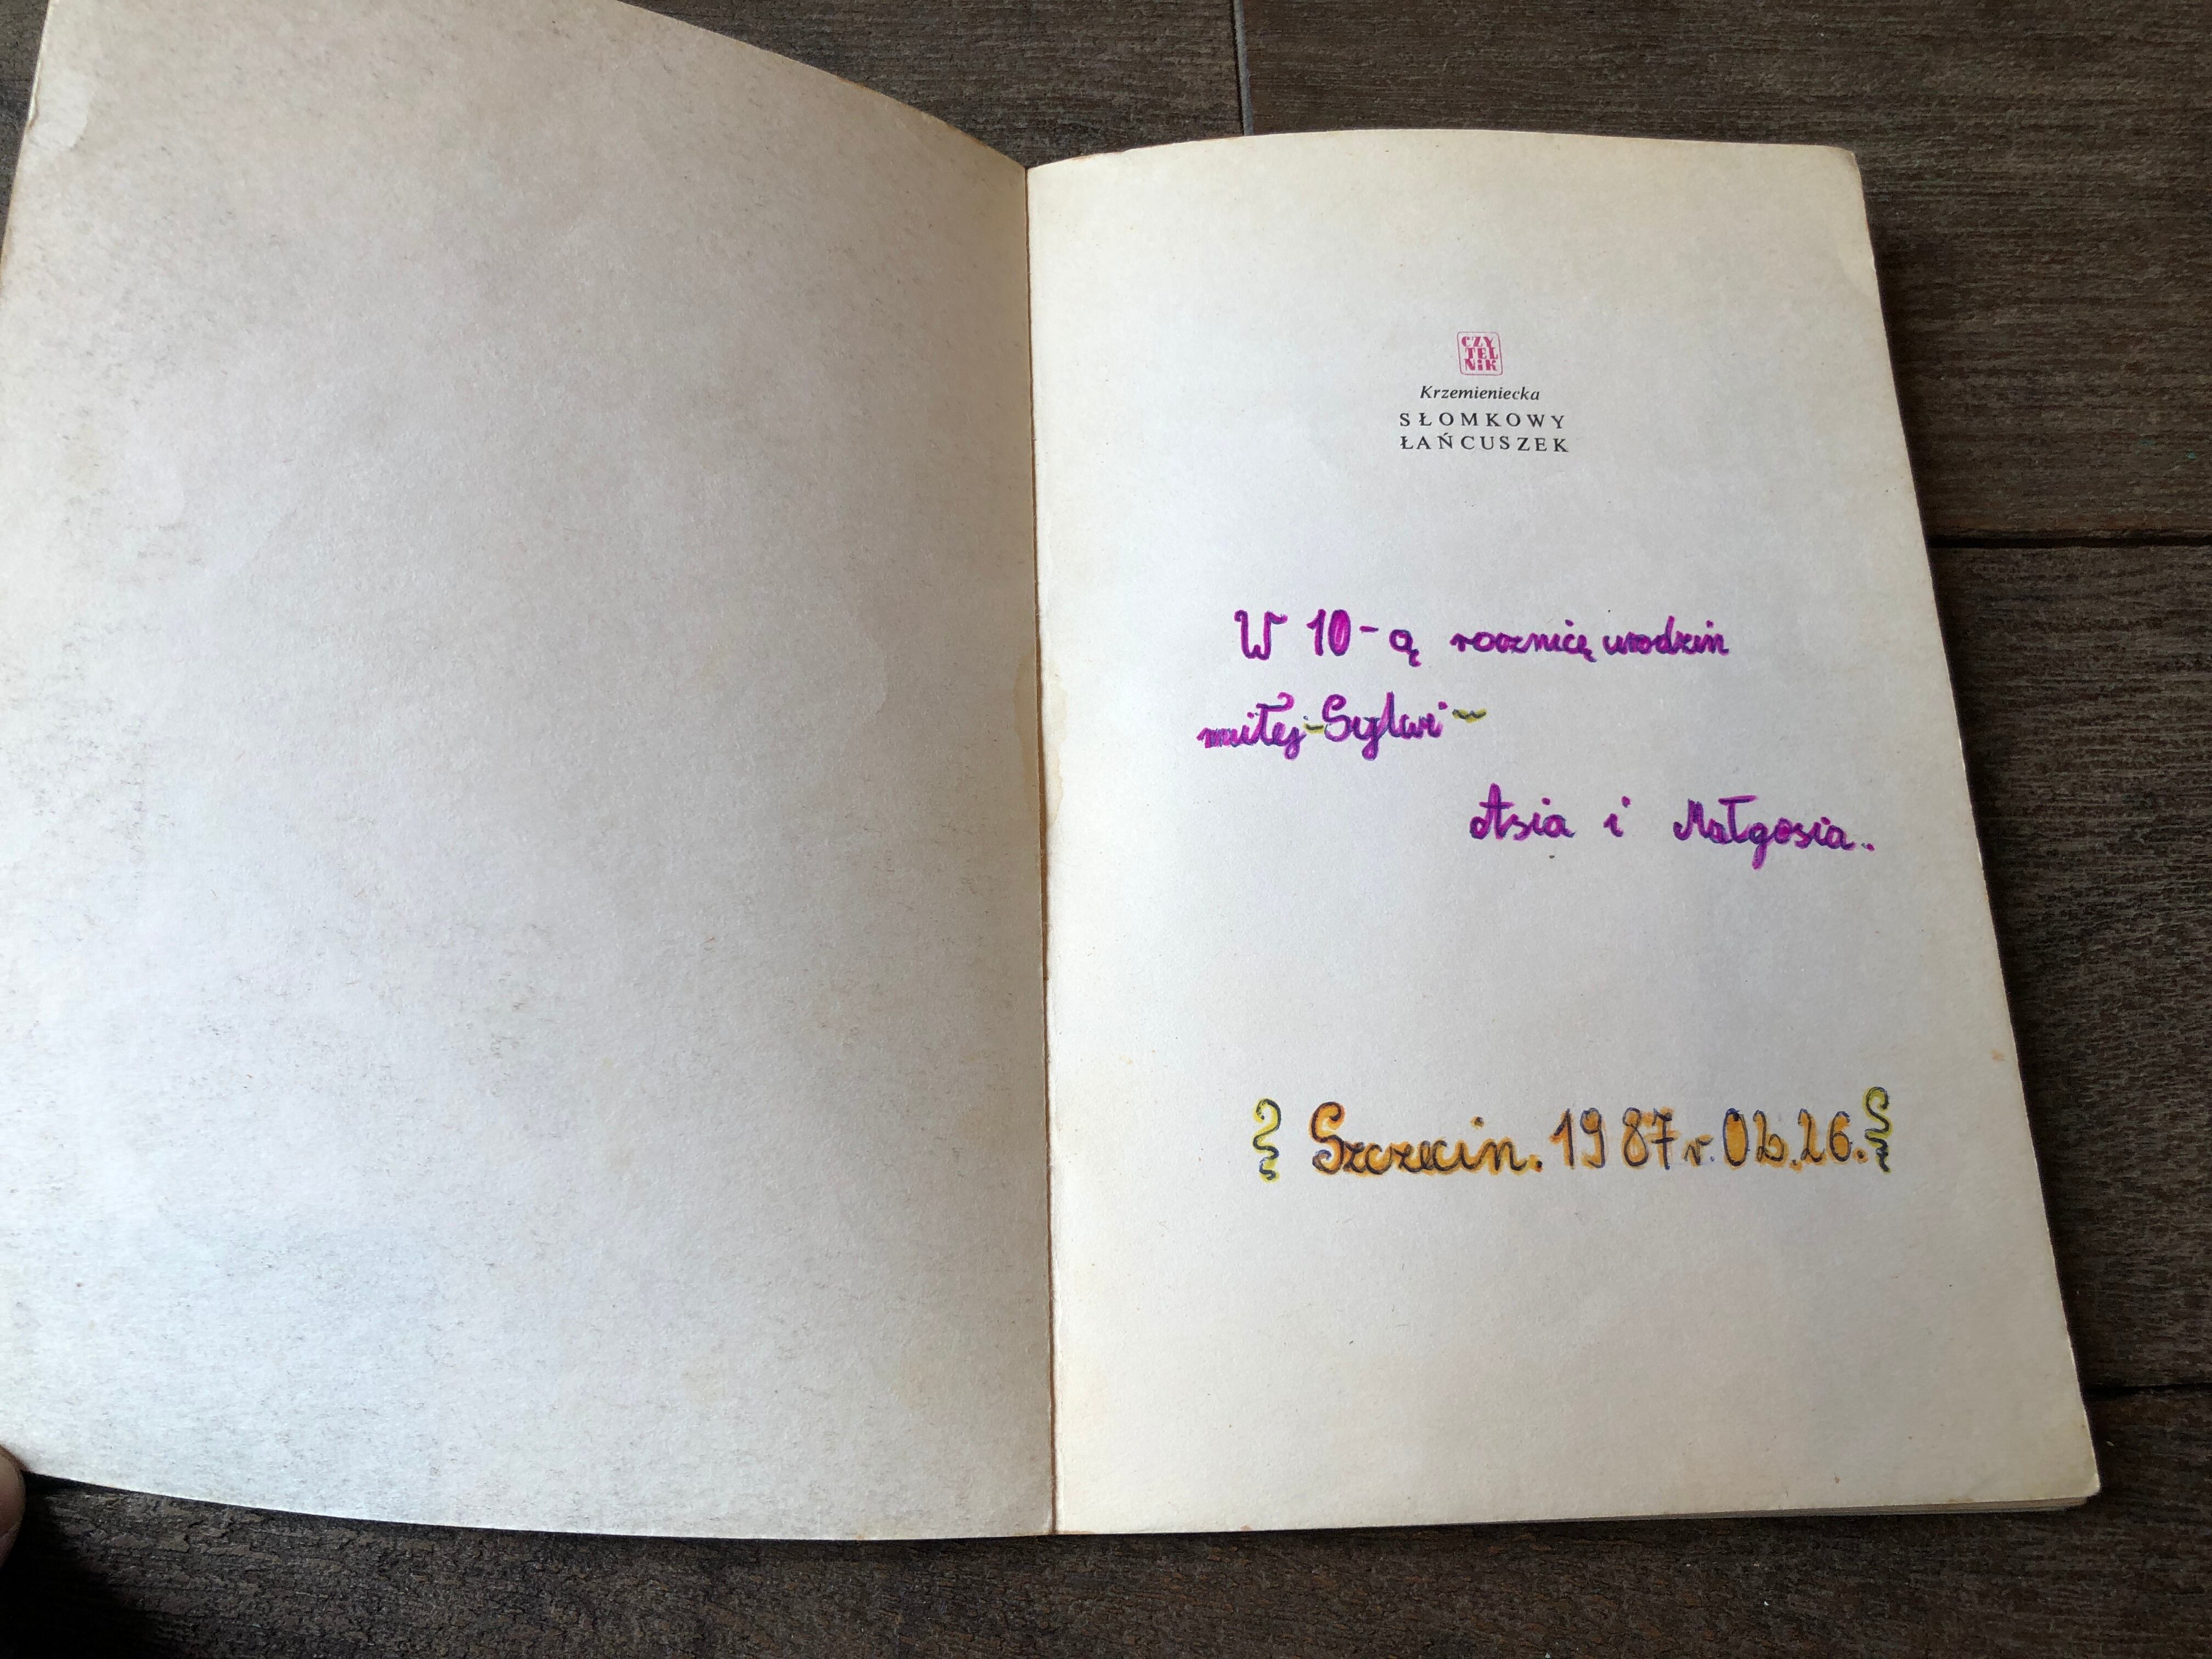 CZY
TEL
NIK
Krzemieniecka
SŁOMKOWY
ŁAŃCUSZEK
W 10-ą rocznicę urodzin
miłej-Sylwi~
Asia i Małgosia..
Szczecin. 1987 r. 02.26.